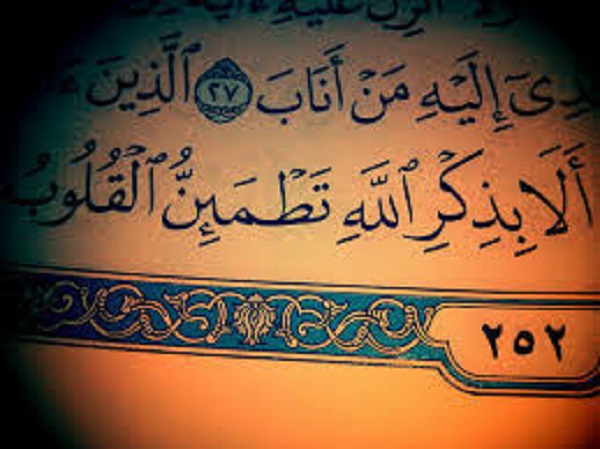 أُنزِلَ عَلَيْهِ ءَايَة
دِىٓ إِلَيْهِ مَنْ أَنَابَ ٢٧ ٱلَّذِينَ ءَا
أَلَا بِذِكْرِ ٱللَّهِ تَطْمَئِنُّ ٱلْقُلُوبُ
٢٥٢